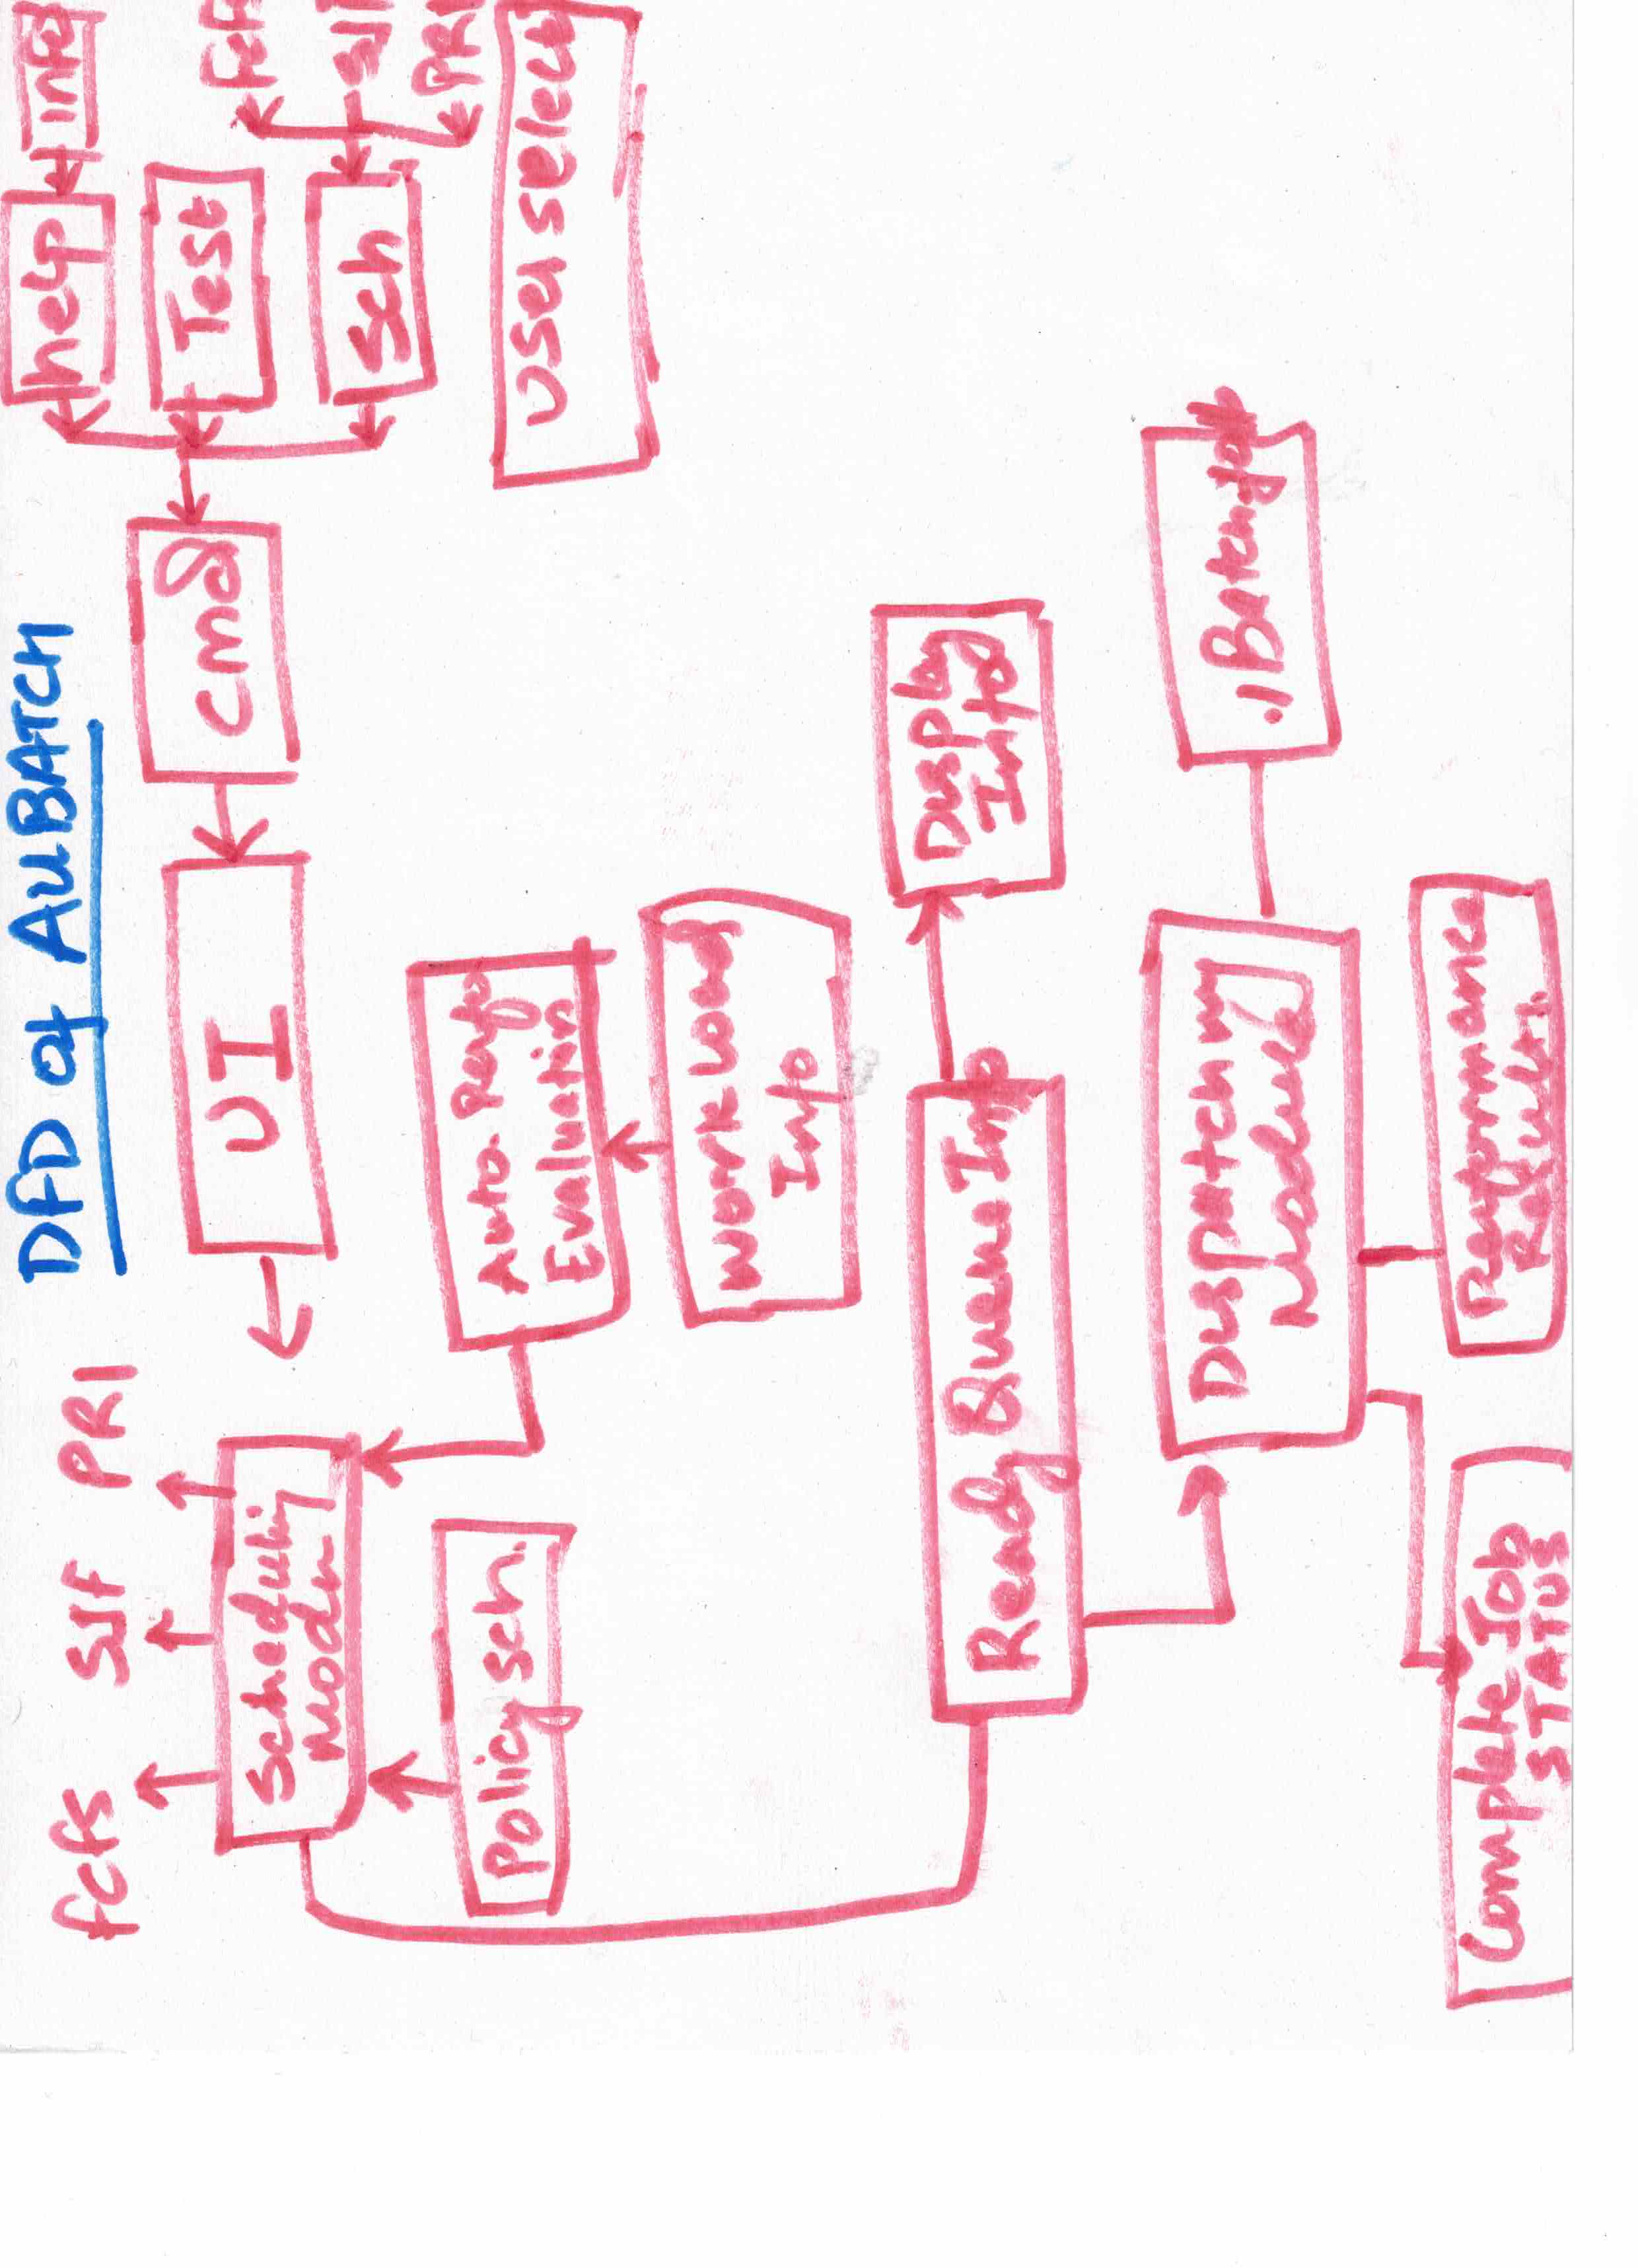 DFD of AUBATCH
fcfs SJF PRI
help
info
UI
cmd
Test
Scheduling
Modu
fcfs
Sch
SJF
PRI
Policy sch.
Auto. Perfo
Evaluation
User select
Work Load
Info
Ready Queue Info
Display
Info
Dispatching
Module
./Batch-job
Complete Job
STATUS
Performance
Results.